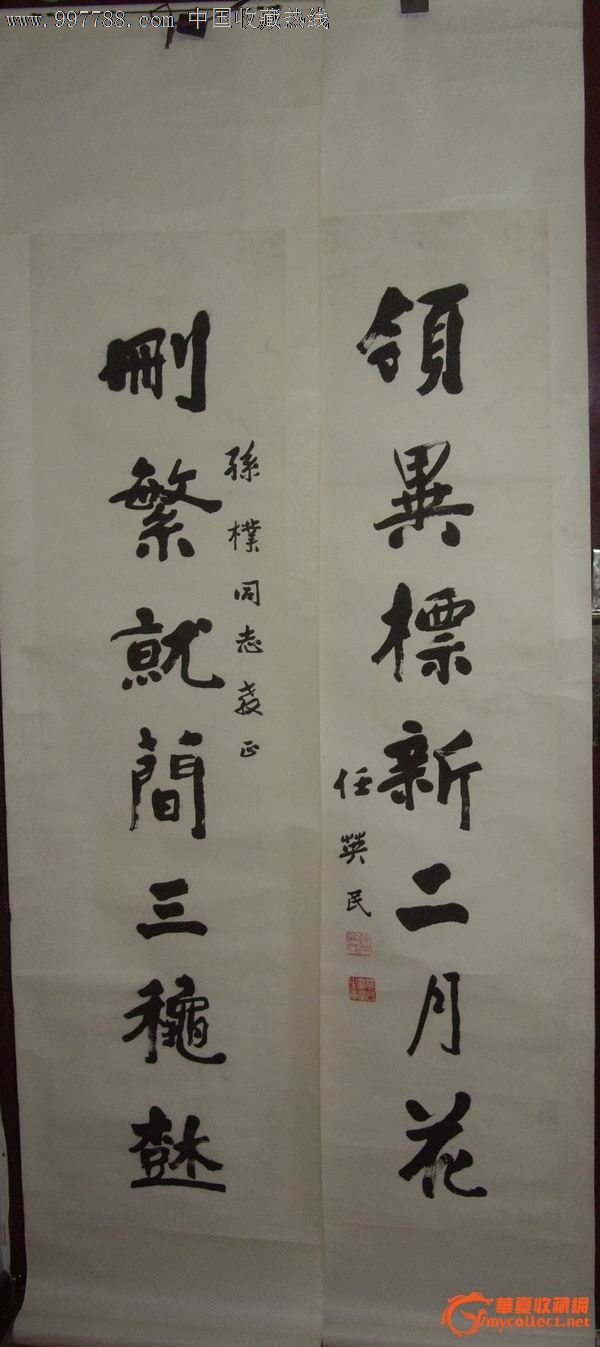 www.997788.com 中国收藏热线
領異標新二月花
任英民
孫樸同志教正
刪繁就簡三龝樹
華夏收藏網
mycollect.net